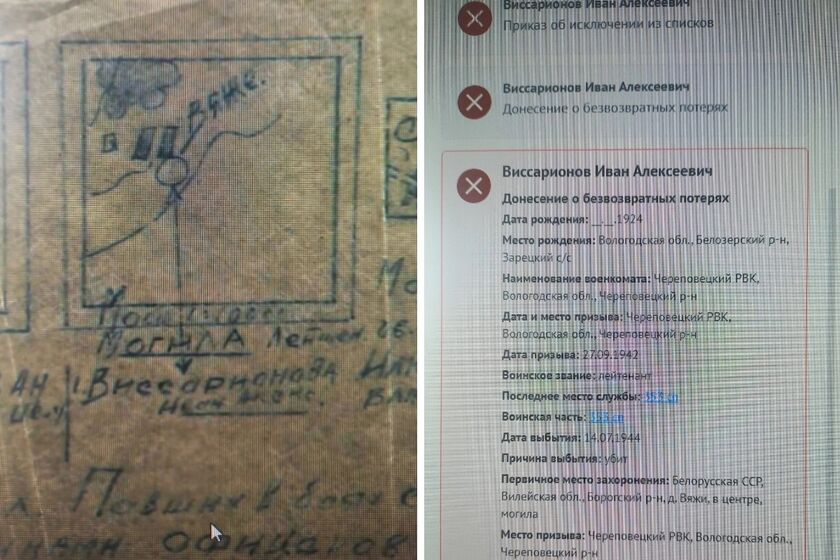 ВЯЖЕ.
МОГИЛА Лейтен.
Виссарионова
Павших в боях с
ОФИЦЕРОВ
Виссарионов Иван Алексеевич
Приказ об исключении из списков
Виссарионов Иван Алексеевич
Донесение о безвозвратных потерях
Виссарионов Иван Алексеевич
Донесение о безвозвратных потерях
Дата рождения: __.__.1924
Место рождения: Вологодская обл., Белозерский р-н,
Зарецкий с/с
Наименование военкомата: Череповецкий РВК,
Вологодская обл., Череповецкий р-н
Дата и место призыва: Череповецкий РВК,
Вологодская обл., Череповецкий р-н
Дата призыва: 27.09.1942
Воинское звание: лейтенант
Последнее место службы: 353 сп
Воинская часть: 353 сп
Дата выбытия: 14.07.1944
Причина выбытия: убит
Первичное место захоронения: Белорусская ССР,
Вилейская обл., Борогский р-н, д. Вяжи, в центре,
могила
Место призыва: Череповецкий РВК, Вологодская обл.,
Череповецкий р-н